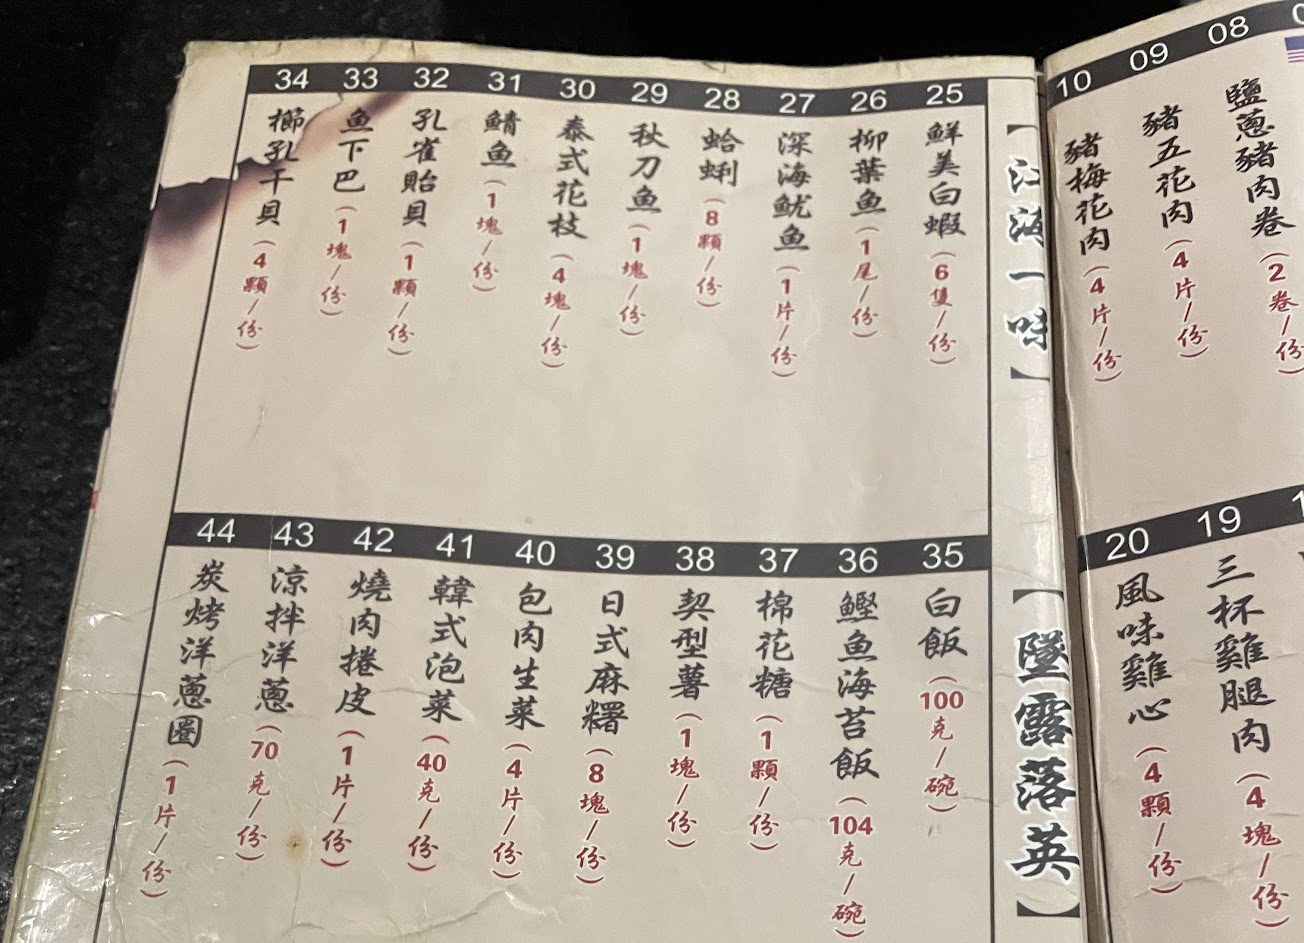 08
鹽蔥豬肉卷(2卷/份)
09
豬五花肉(4片/份)
10
豬梅花肉(4片/份)
19
三杯雞腿肉(4塊/份)
20
風味雞心(4顆/份)
【江海一味】
25
鮮美白蝦(6隻/份)
26
柳葉魚(1尾/份)
27
深海魷魚(1片/份)
28
蛤蜊(8顆/份)
29
秋刀魚(1塊/份)
30
泰式花枝(4塊/份)
31
鯖魚(1塊/份)
32
孔雀貽貝(1顆/份)
33
魚下巴(1塊/份)
34
櫛孔干貝(4顆/份)
【墜露落英】
35
白飯(100克/碗)
36
鰹魚海苔飯(104克/碗)
37
棉花糖(1顆/份)
38
契型薯(1塊/份)
39
日式麻糬(8塊/份)
40
包肉生菜(4片/份)
41
韓式泡菜(40克/份)
42
燒肉捲皮(1片/份)
43
涼拌洋蔥(70克/份)
44
炭烤洋蔥圈(1片/份)